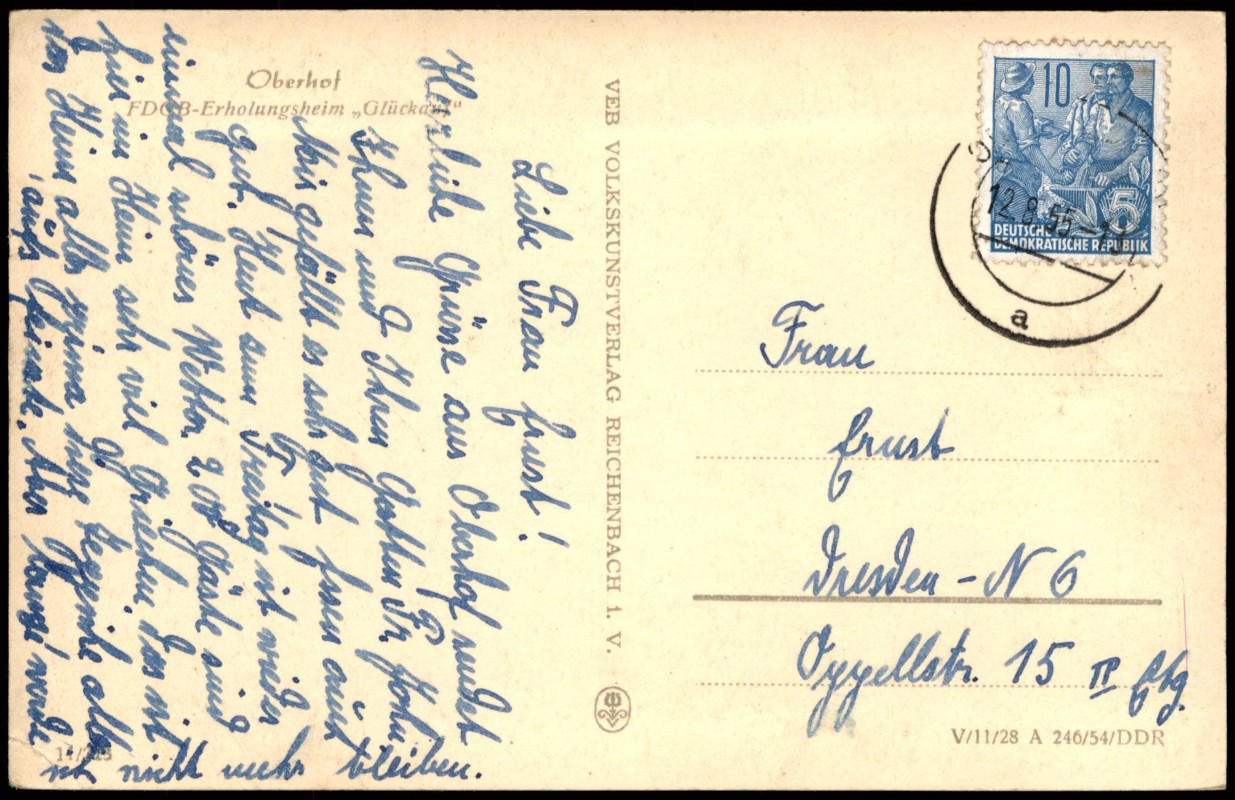 Oberhof
FDGB-Erholungsheim „Glückauf“
Liebe Frau Ernst!
Herzliche Grüsse aus Oberhof sendet
Ihnen und Ihren Gatten Fr. John.
Mir gefällt es sehr gut Essen auch
gut. Heut zum Freitag ist wieder
einmal schönes Wetter. 200 Gäste sind
hier im Heim sehr viel Griechen. Das ist
das Heim alles prima mus Teppiche alles
aufs feinste. Aber lange werde
ich nicht mehr bleiben.
14/
VEB VOLKSKUNSTVERLAG REICHENBACH I. V.
10
12.8.55
5
DEUTSCHE
DEMOKRATISCHE REPUBLIK
a
Frau
Ernst
Dresden - N 6
Oppellstr. 15 II Etg.
V/11/28 A 246/54/DDR